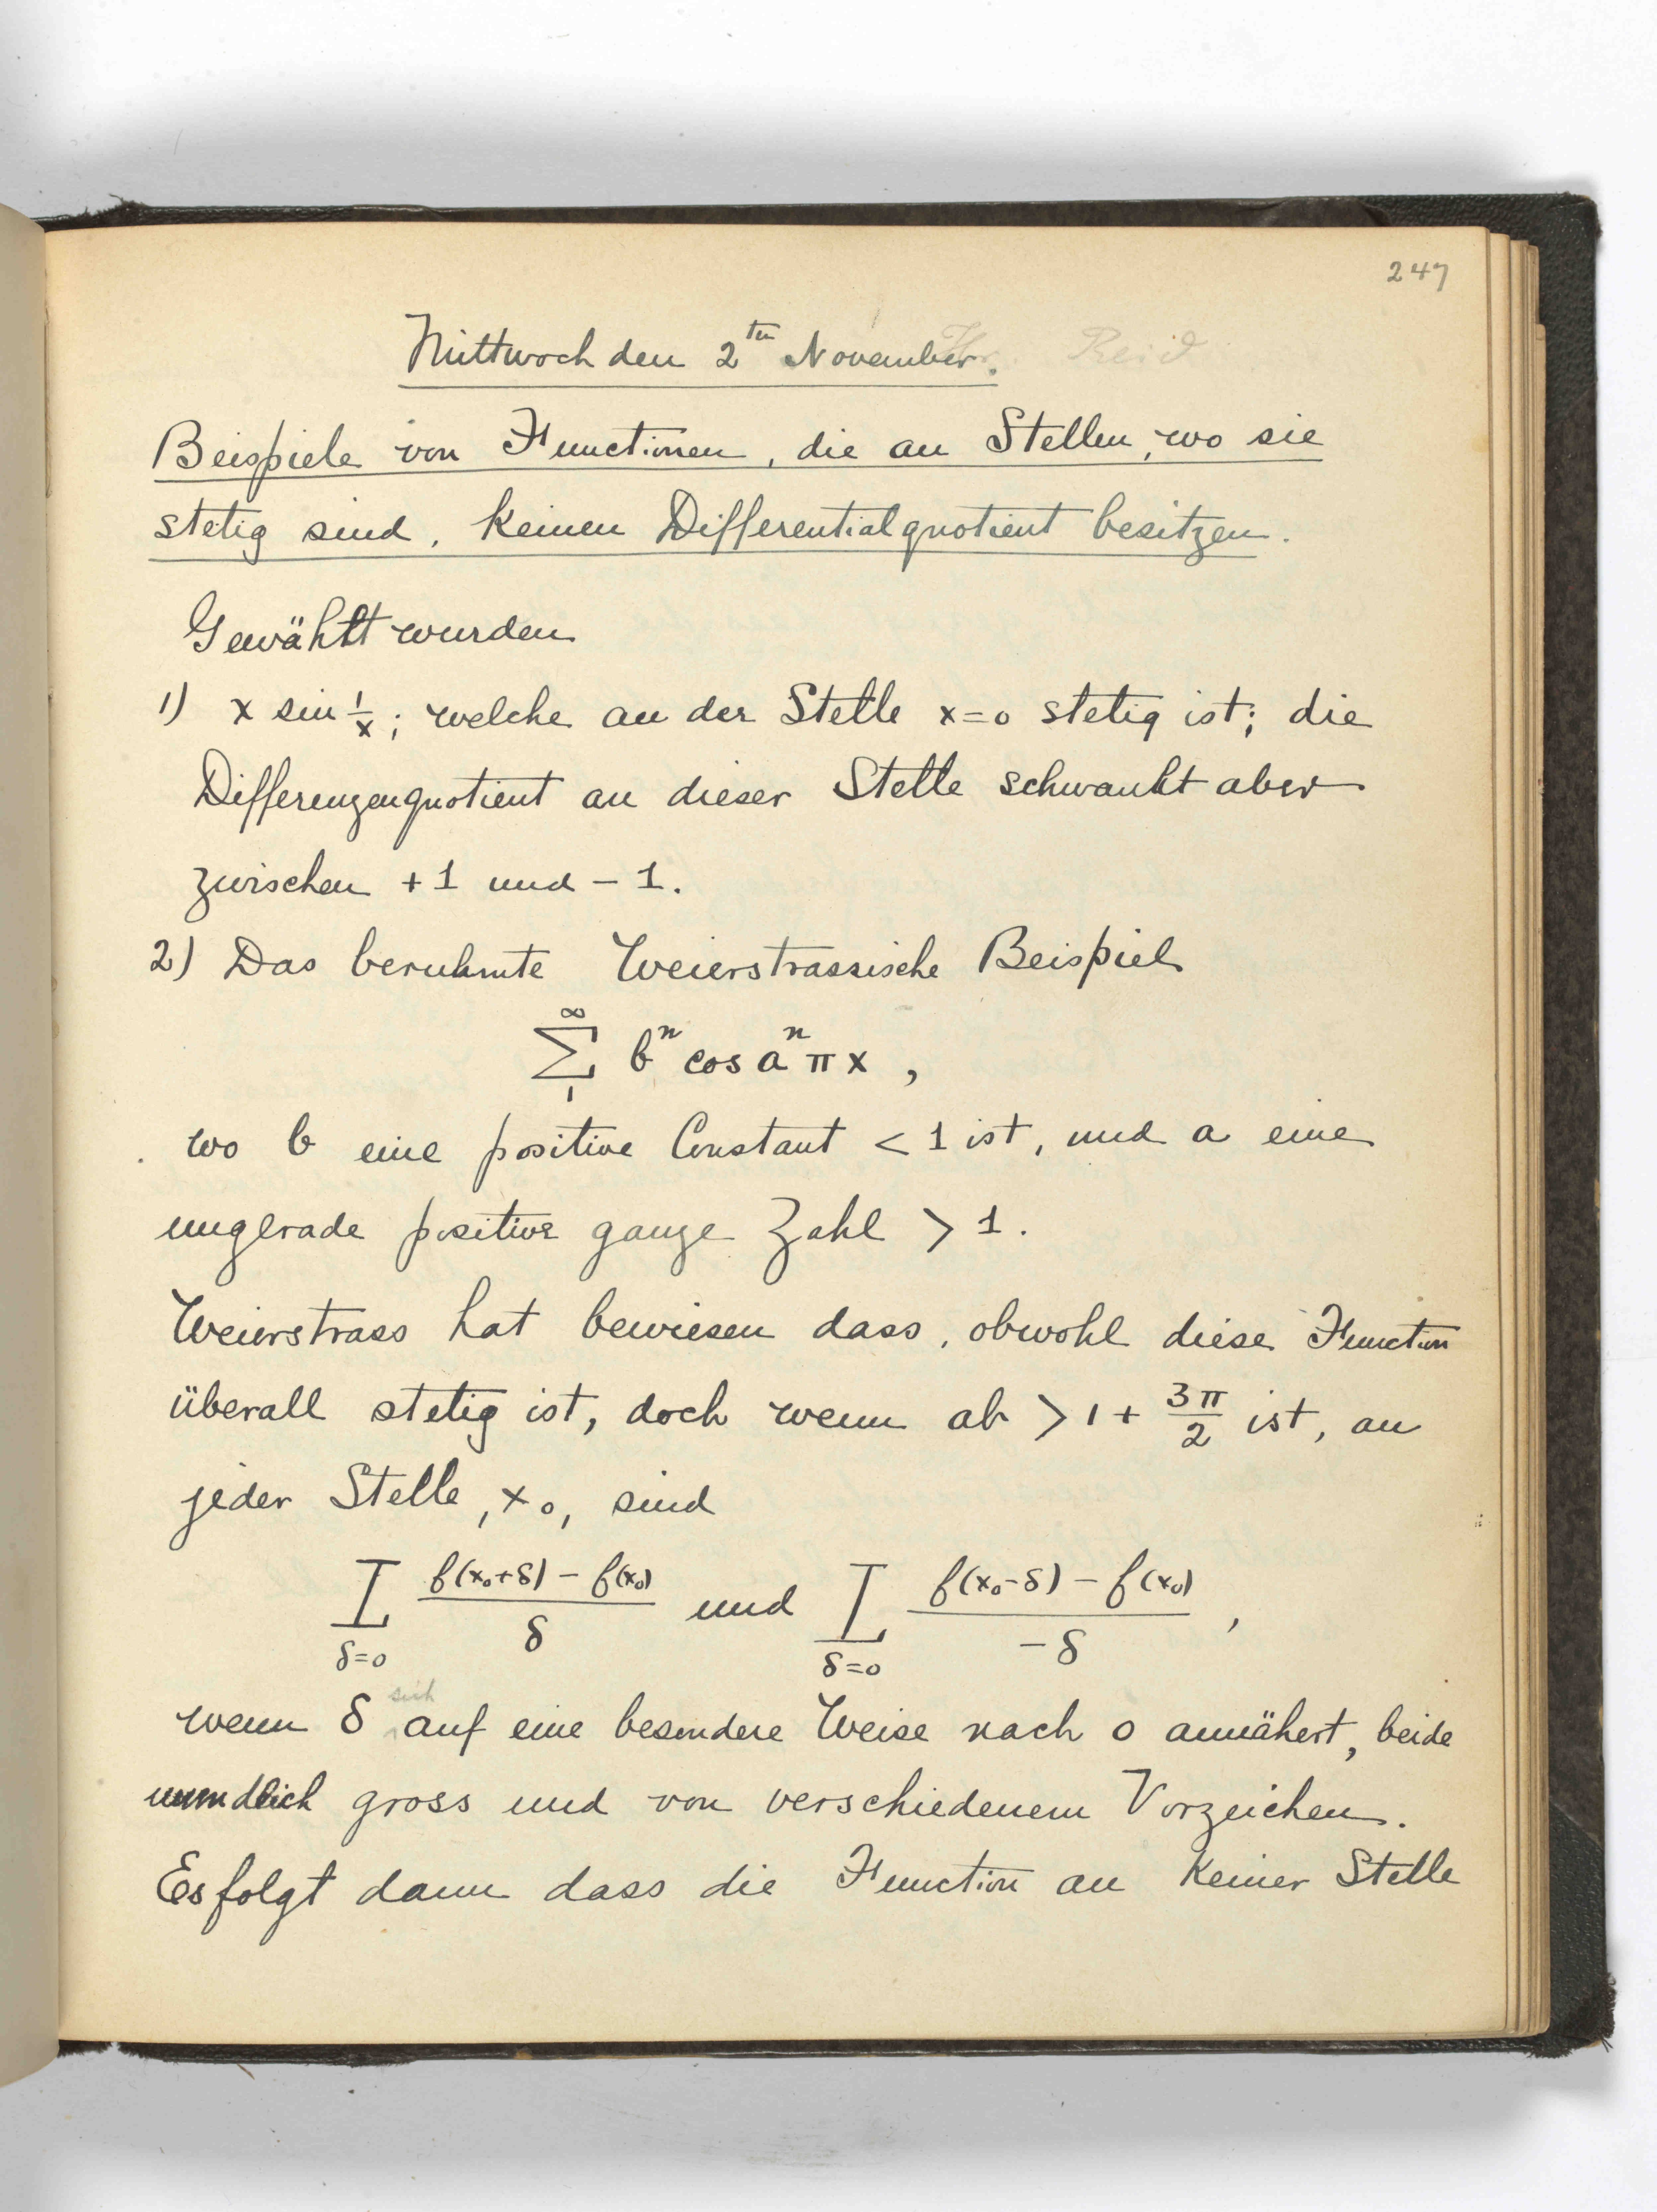 247
Mittwoch den 2ten November. Hr. Reid
Beispiele von Functionen, die an Stellen, wo sie
stetig sind, keinen Differentialquotient besitzen.
Gewählt wurden
1) x sin 1/x; welche an der Stelle x=0 stetig ist; die
Differenzenquotient an dieser Stelle schwankt aber
zwischen +1 und -1.
2) Das beruhmte Weierstrassische Beispiel
∞
∑ bⁿ cos aⁿ π x ,
1
wo b eine positive Constant < 1 ist, und a eine
ungerade positive ganze Zahl > 1.
Weierstrass hat bewiesen dass, obwohl diese Function
überall stetig ist, doch wenn ab > 1 + 3π/2 ist, an
jeder Stelle, x₀, sind
L δ=0 (f(x₀+δ) - f(x₀))/δ und L δ=0 (f(x₀-δ) - f(x₀))/-δ ,
wenn δ sich auf eine besondere Weise nach 0 annähert, beide
unendlich gross und von verschiedenem Vorzeichen.
Es folgt dann dass die Function an keiner Stelle